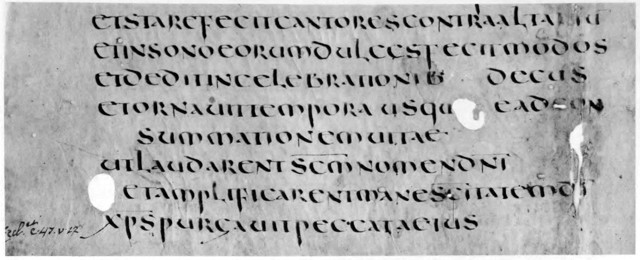 ET STARE FECIT CANTORES CONTRA ALTARIU
ET IN SONO EORUM DULCES FECIT MODOS
ET DEDIT IN CELEBRATIONIB DECUS
ET ORNAUIT TEMPORA USQUE AD CON
SUMMATIONEM UITAE
UT LAUDARENT SCM NOMEN DNI
ET AMPLIFICARENT MANE SCITATEM DI
XPS PURGAUIT PECCATA EIUS